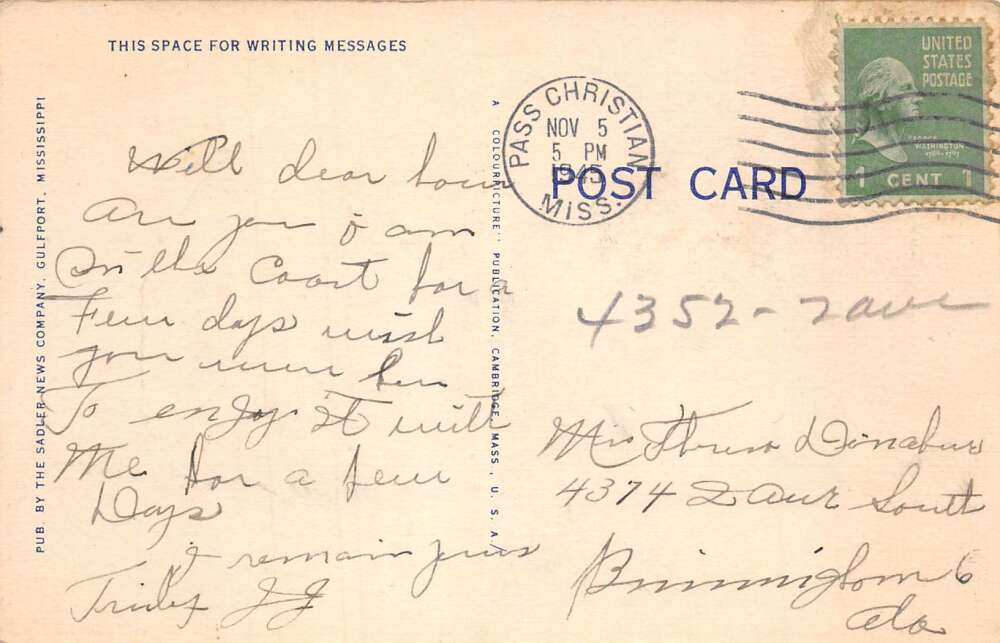 THIS SPACE FOR WRITING MESSAGES
PUB. BY THE SADLER NEWS COMPANY, GULFPORT, MISSISSIPPI
A "COLOURPICTURE" PUBLICATION, CAMBRIDGE, MASS., U. S. A.
PASS CHRISTIAN
NOV 5
5 PM
1945
MISS.
UNITED
STATES
POSTAGE
GEORGE
WASHINGTON
1789-1797
1 CENT 1
POST CARD
Will dear how
Are you I am
On the Coast for a
Few days wish
you were her
To enjoy It with
Me for a few
Days
I remain yours
Truley JJ
4352 - 2 ave
Mrs Donahue
4374 2 Ave South
Birmingham 6
Ala